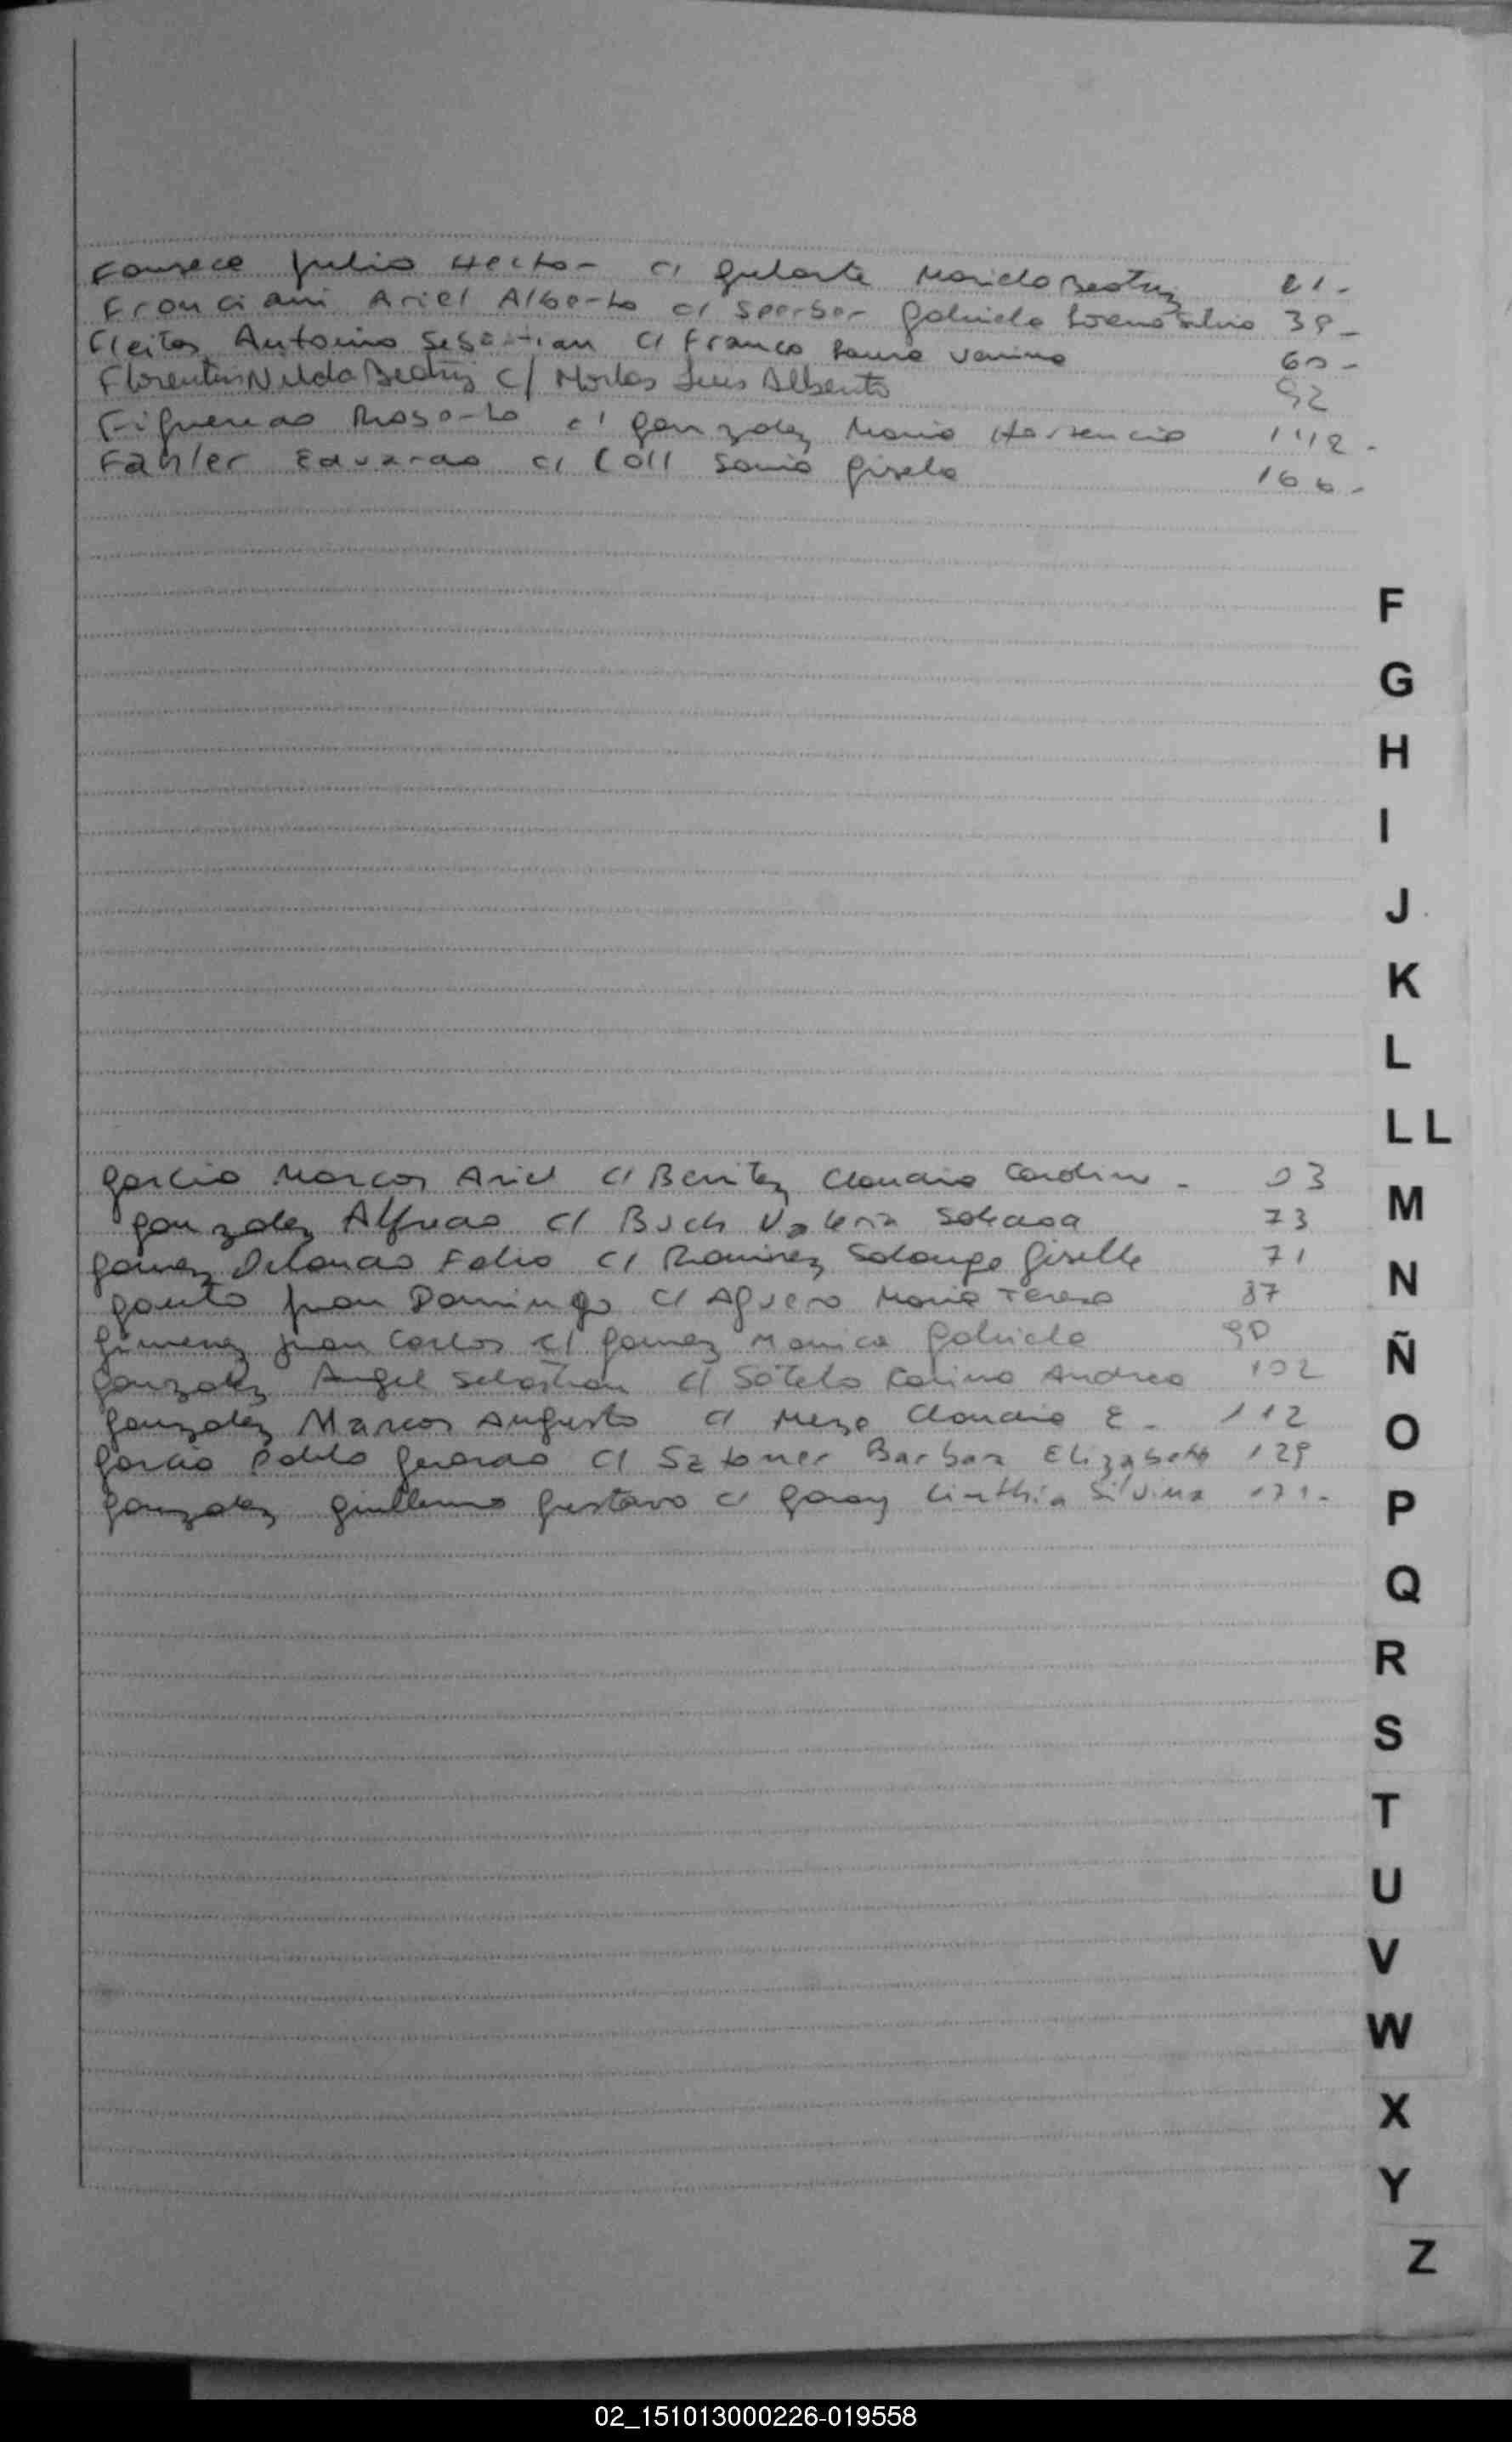 Fonseca Julio Hector c/ Gularte Mariela Beatriz 21-
Franciani Ariel Alberto c/ Sperber Gabriela Lorena Silvia 39-
Fleitas Antonino Sebastian c/ Franco Laura Yanina 60-
Florentin Nilda Beatriz c/ Morlas Luis Alberto 92
Figueredo Rosa-to c/ Gonzalez Maria Hortencia 142-
Fahler Eduardo c/ Coll Sonia Gisela 166-
F
G
H
I
J
K
L
LL
Garcia Marcos Ariel c/ Benitez Claudia Carolina - 03
Gonzalez Alfredo c/ Buch Valeria Soledad 73
Gomez Orlando Fabio c/ Ramirez Solange Giselle 71
Gauto Juan Domingo c/ Aguero Maria Teresa 87
Gimenez Juan Carlos c/ Gomez Monica Gabriela 90
Gonzalez Angel Sebastian c/ Sotelo Karina Andrea 102
Gonzalez Marcos Augusto c/ Meza Claudia E. 112
Garcia Pablo Gerardo c/ Sztomer Barbara Elizabeth 129
Gonzalez Guillermo Gustavo c/ Garay Cinthia Silvina 171-
M
N
Ñ
O
P
Q
R
S
T
U
V
W
X
Y
Z
02_151013000226-019558